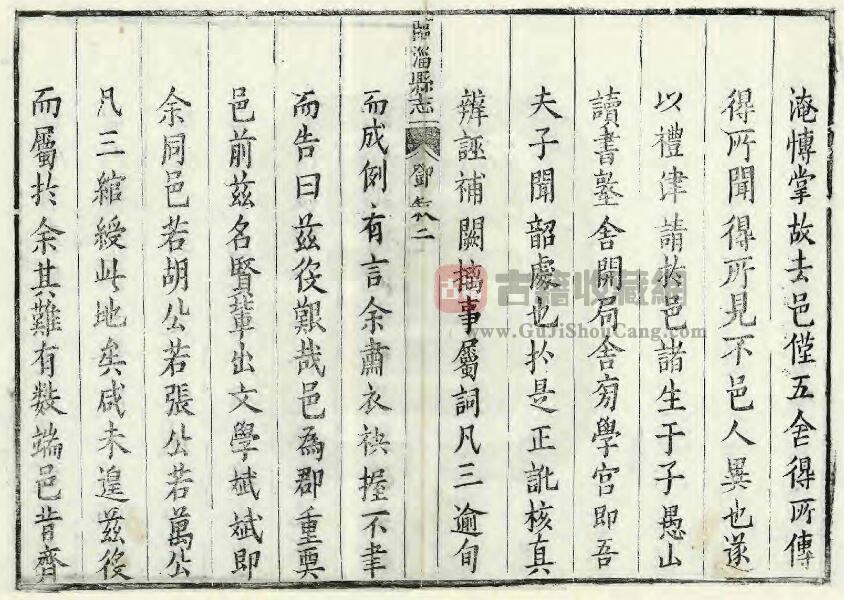 淹慱掌故去邑僅五舍得所傳
得所聞得所見不邑人異也遂
以禮津請於邑諸生于子愚山
讀書臺舍開局舍旁學宮即吾
夫子聞韶處也於是正訛核真
辨誣補闕摛事屬詞凡三逾旬
臨淄縣志
鄧敘二
而成例有言余肅衣袂握不聿
而告曰茲役艱哉邑為郡重耎
邑前茲名賢輩出文學斌斌即
余同邑若胡公若張公若萬公
凡三綰綬此地矣咸未遑茲役
而屬於余其難有數端邑昔齊
古籍收藏網
www.GuJiShouCang.com